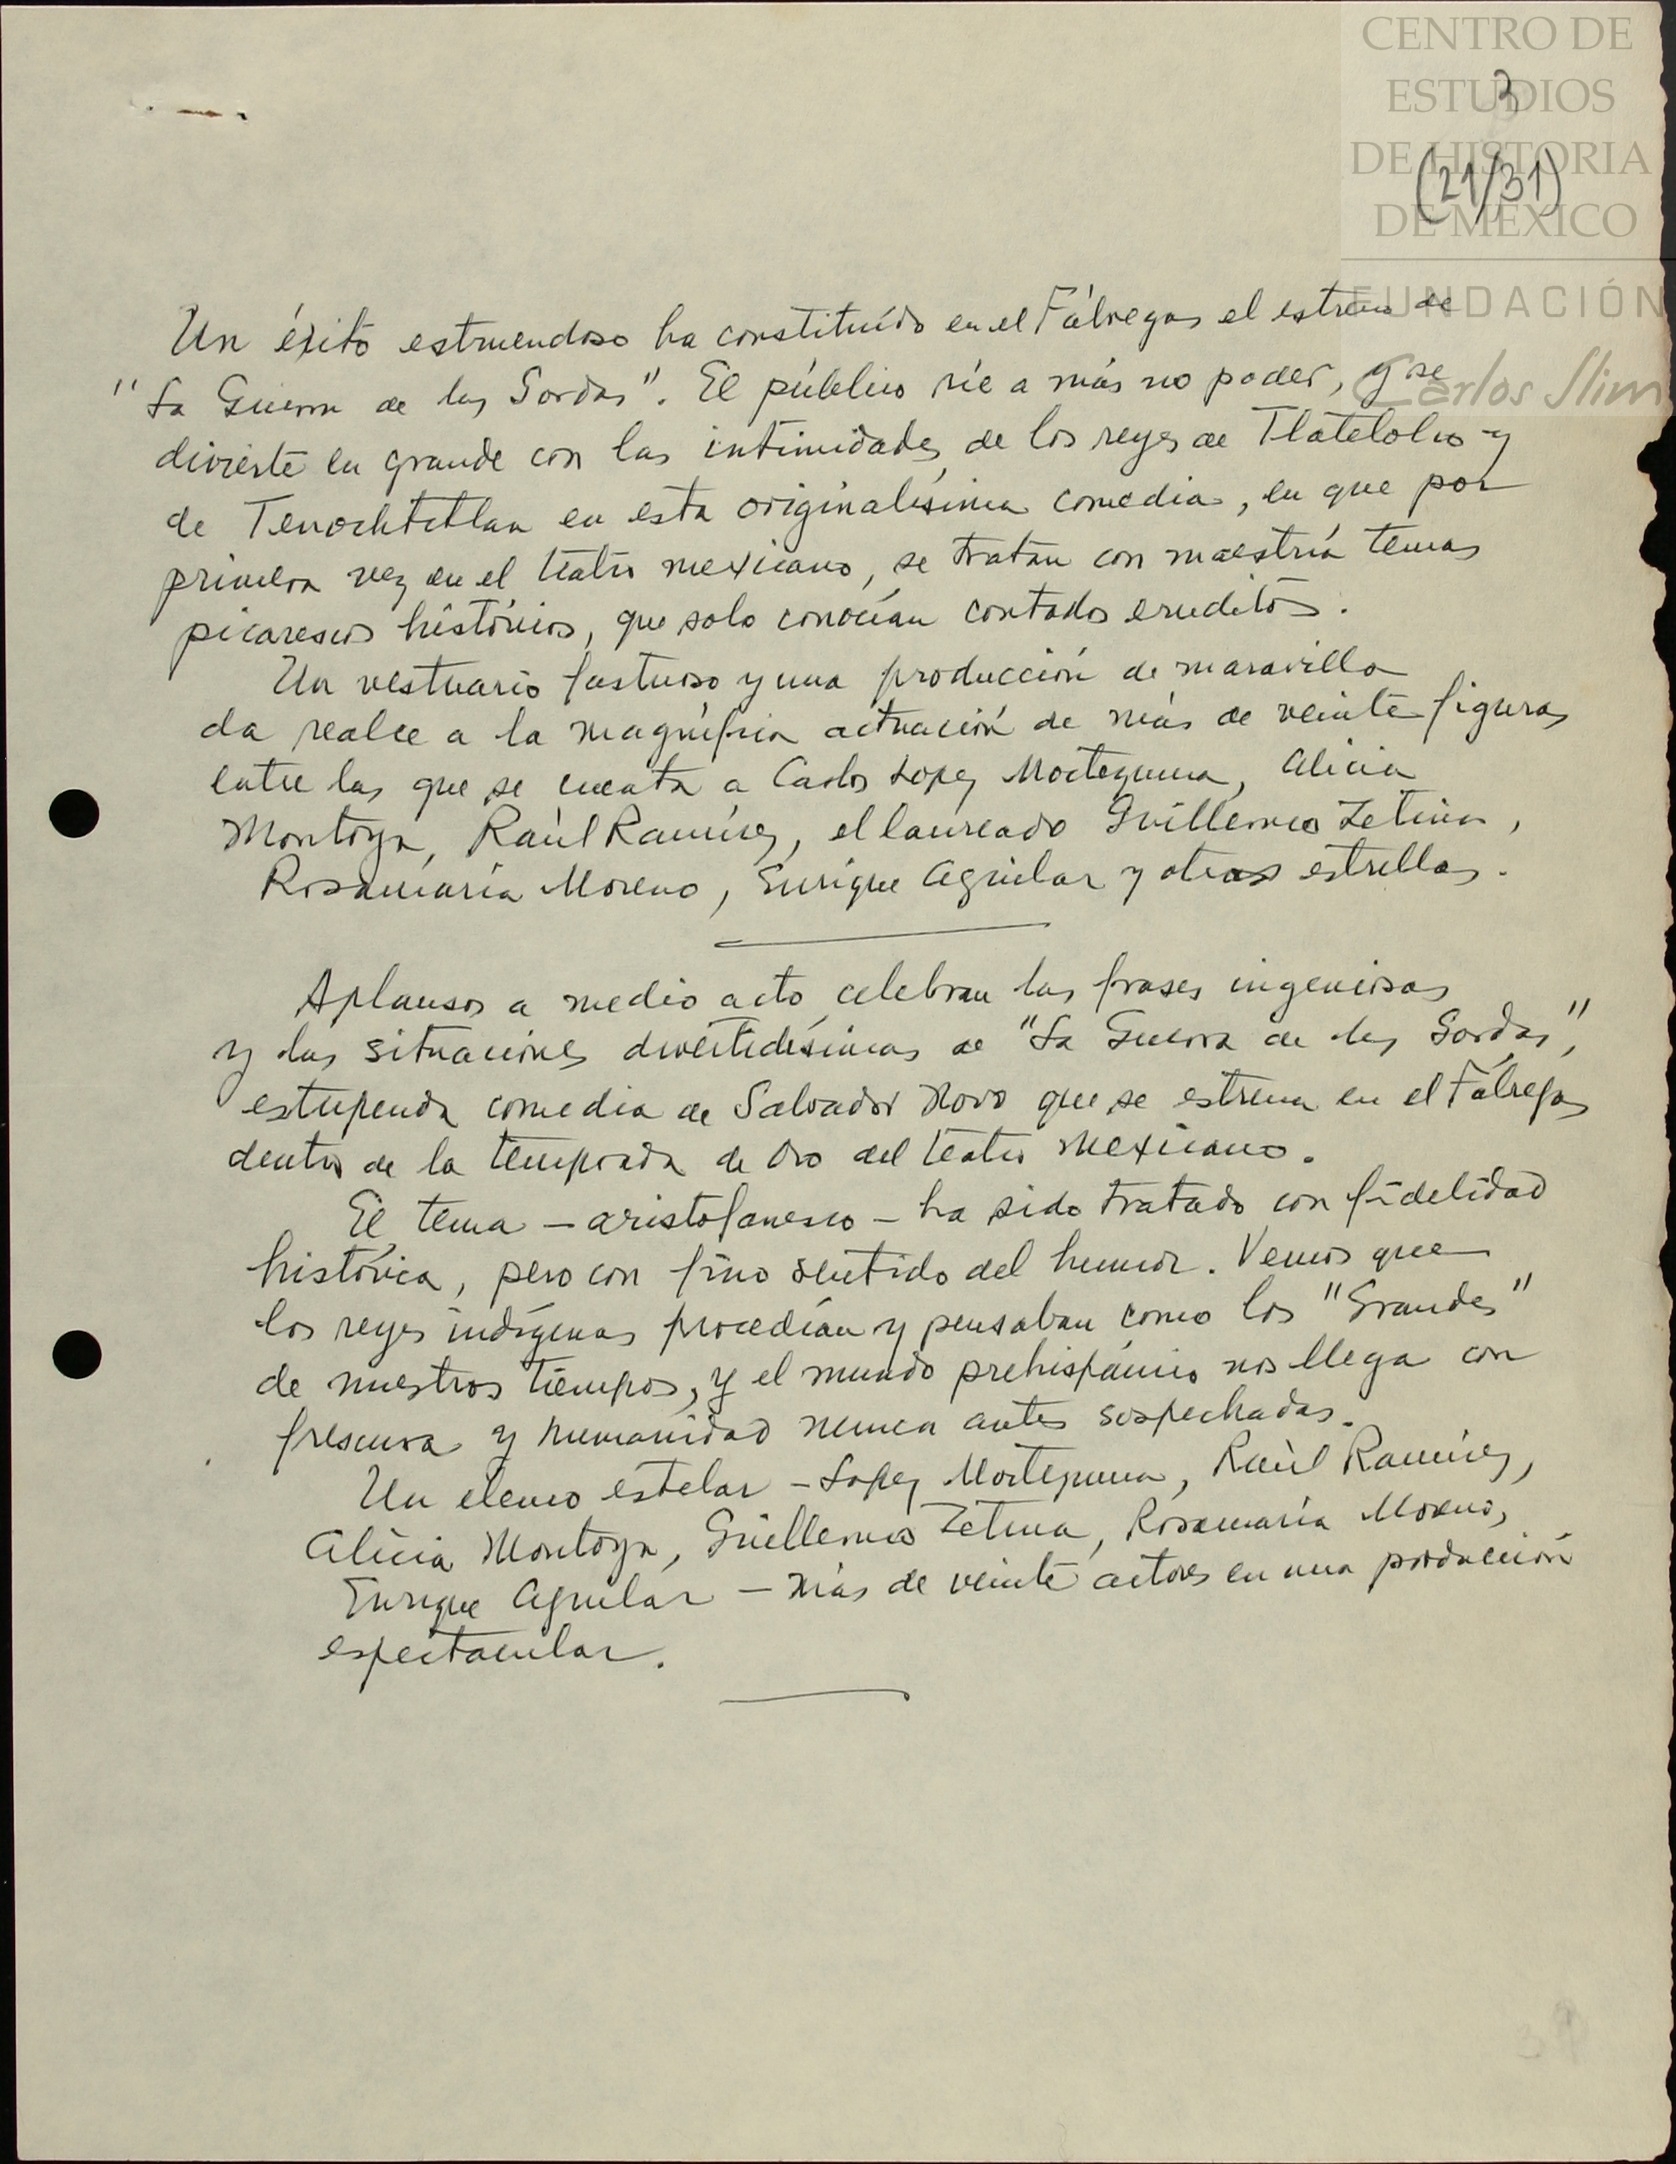 CENTRO DE
ESTUDIOS
DE HISTORIA
DE MÉXICO
FUNDACIÓN
Carlos Slim
3
(21/31)
Un éxito estruendoso ha constituído en el Fábregas el estreno de
"La Guerra de las Gordas". El público ríe a más no poder, y se
divierte en grande con las intimidades de los reyes de Tlatelolco y
de Tenochtitlan en esta originalísima comedia, en que por
primera vez en el teatro mexicano, se tratan con maestría temas
picarescos históricos, que solo conocían contados eruditos.
Un vestuario fastuoso y una producción de maravilla
da realce a la magnífica actuación de más de veinte figuras
entre las que se cuenta a Carlos Lopez Moctezuma, Alicia
Montoya, Raúl Ramírez, el laureado Guillermo Zetina,
Rosamaría Moreno, Enrique Aguilar y otras estrellas.
Aplausos a medio acto celebran las frases ingeniosas
y las situaciones divertidísimas de "La Guerra de las Gordas",
estupenda comedia de Salvador Novo que se estrena en el Fábregas
dentro de la temporada de Oro del teatro Mexicano.
El tema - aristofanesco - ha sido tratado con fidelidad
histórica, pero con fino sentido del humor. Vemos que
los reyes indígenas procedían y pensaban como los "Grandes"
de nuestros tiempos, y el mundo prehispánico nos llega con
frescura y humanidad nunca antes sospechadas.
Un elenco estelar - Lopez Moctezuma, Raúl Ramírez,
Alicia Montoya, Guillermo Zetina, Rosamaría Moreno,
Enrique Aguilar - más de veinte actores en una producción
espectacular.